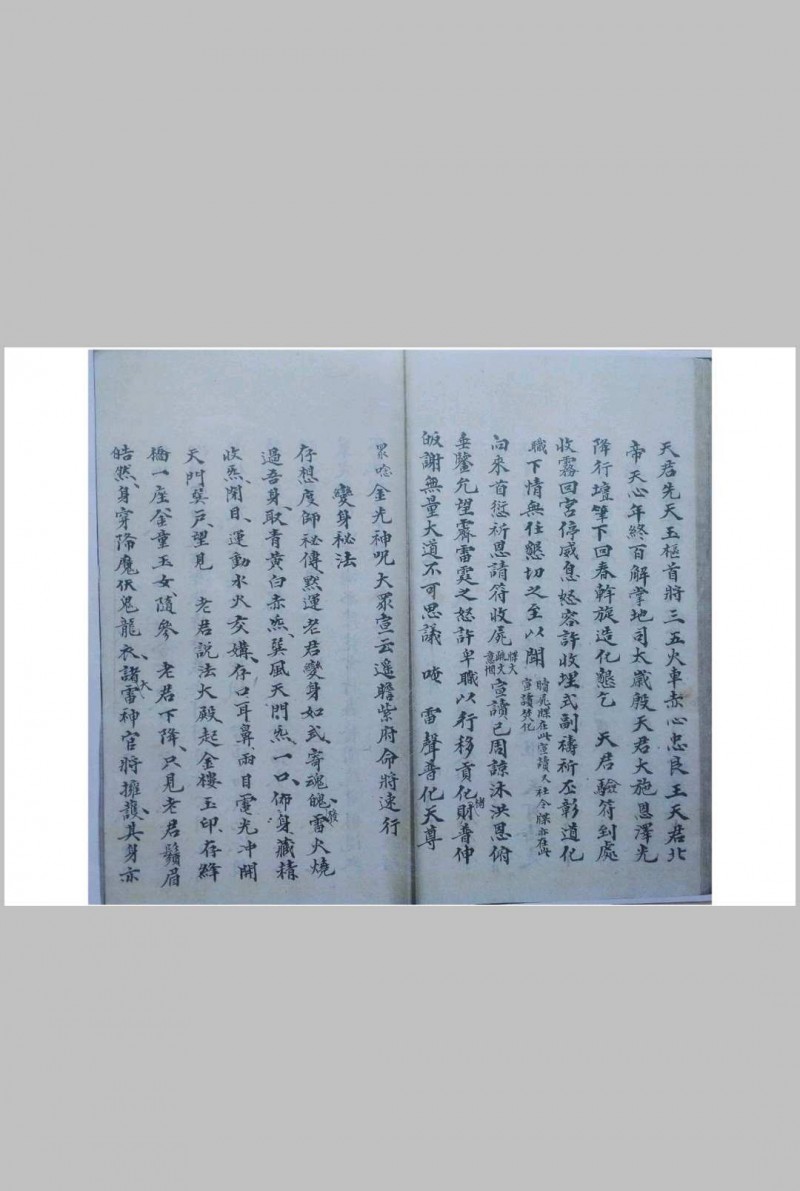 天君先天玉樞首將三五火車赤心忠良王天君北
帝天心年終百解掌地司太歲殷天君大施恩澤光
降行壇筆下回春幹旋造化懇乞 天君驗符到處
收霧回宮停威息怒容許收埋式副禱祈丕彰道化
職下情無任懇切之至以聞 牘尾牒在此宣讀入社令牒亦在此宣讀焚化
向來首愆祈恩請符收屍 牒文疏文意悃 宣讀已周諒沐洪恩俯
垂鑒允望霽雷霆之怒許卑職以行移貢化財楮普伸
皈謝無量大道不可思議 唵 雷聲普化天尊
眾唸金光神咒大眾宣云遙瞻紫府命將速行
變身秘法
存想度師祕傳默運老君變身如式寄魂魄
過吾身取青黃白赤炁巽風天門炁一口佈身藏精
收炁閉目運動水火交媾存口耳鼻兩目電光冲開
天門巽戶望見 老君說法大殿起金樓玉印存絳
橋一座金童玉女隨參 老君下降只見老君鬚眉
皓然身穿降魔伏鬼龍衣諸大雷神官將擁護其身亦